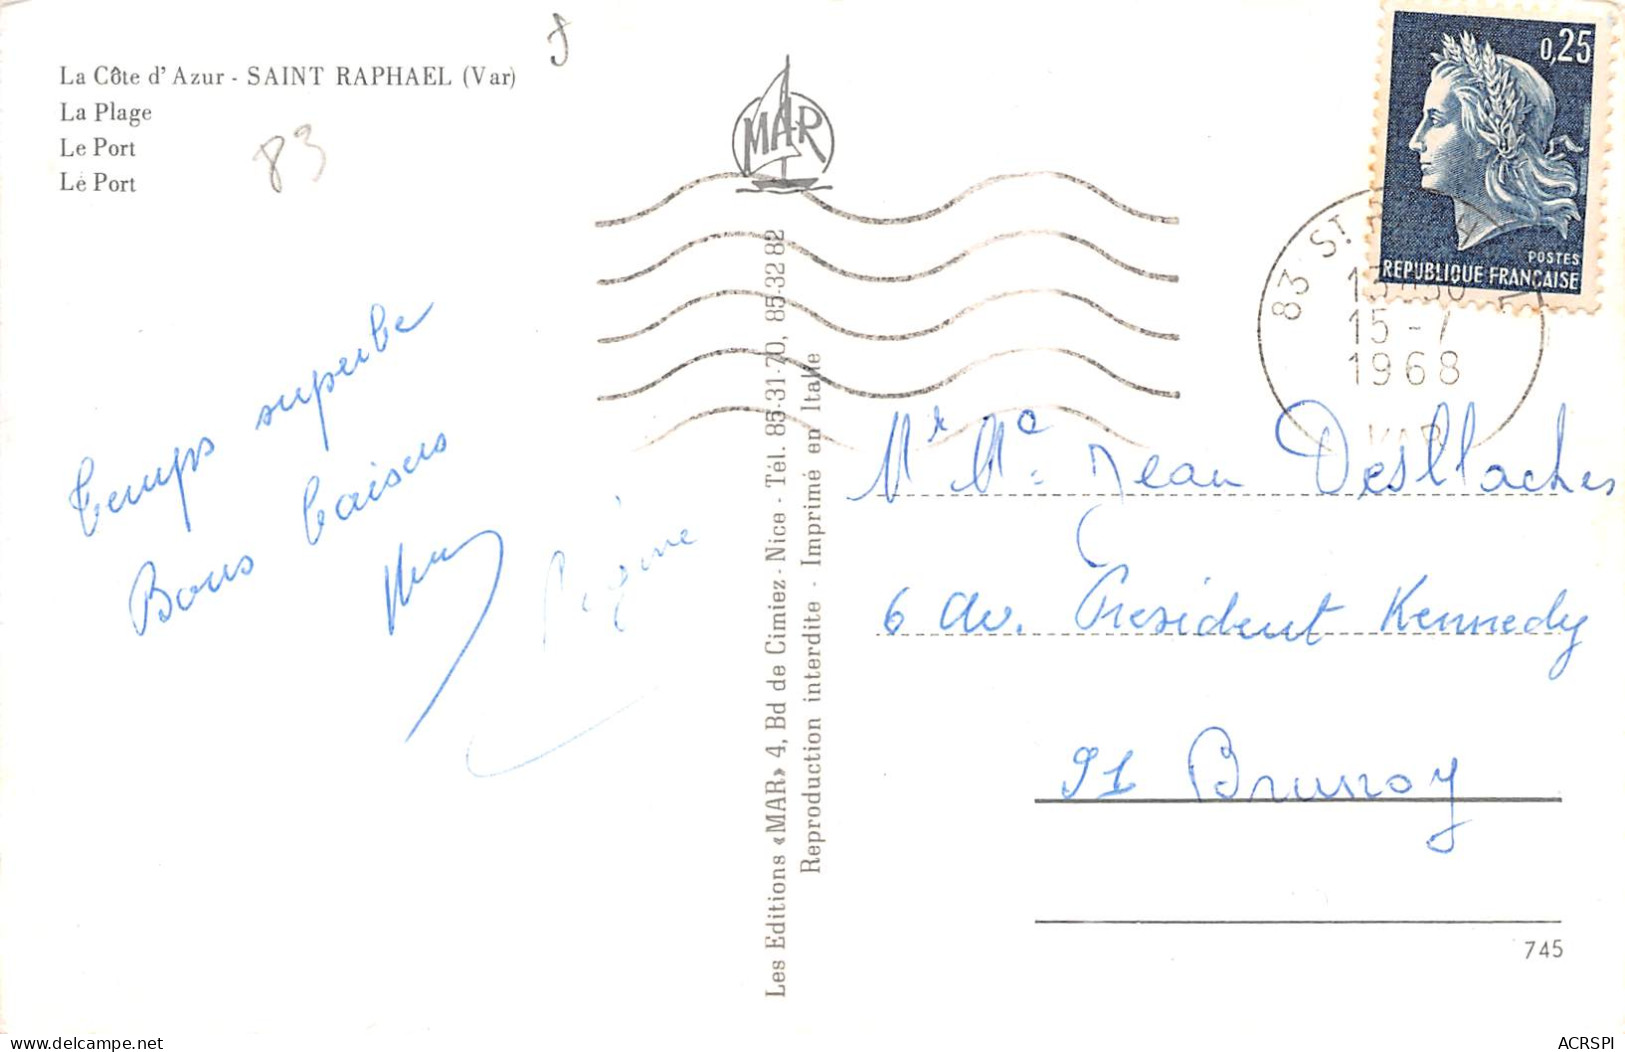 La Côte d'Azur - SAINT RAPHAEL (Var)
La Plage
Le Port
Le Port
83
MAR
0,25
POSTES
REPUBLIQUE FRANÇAISE
83 ST
15 - 7
1968
VAR
Temps superbe
Bons baisers
Régine
Les Editions «MAR» 4, Bd de Cimiez - Nice - Tél. 85-31-70, 85-32 82
Reproduction interdite - Imprimé en Italie
Mr Me Jean
6 Av. President Kennedy
91 Brunoy
745
delcampe.net
ACRSPI